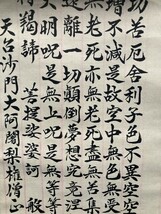 切苦厄舍利子色不異空空
增不減是故空中無色無
無老死亦無老死盡無苦集
離一切顛倒夢想究竟
大明呪是無上呪是無等等
羯諦 菩提娑婆訶 般
天台沙門大阿闍梨権僧正